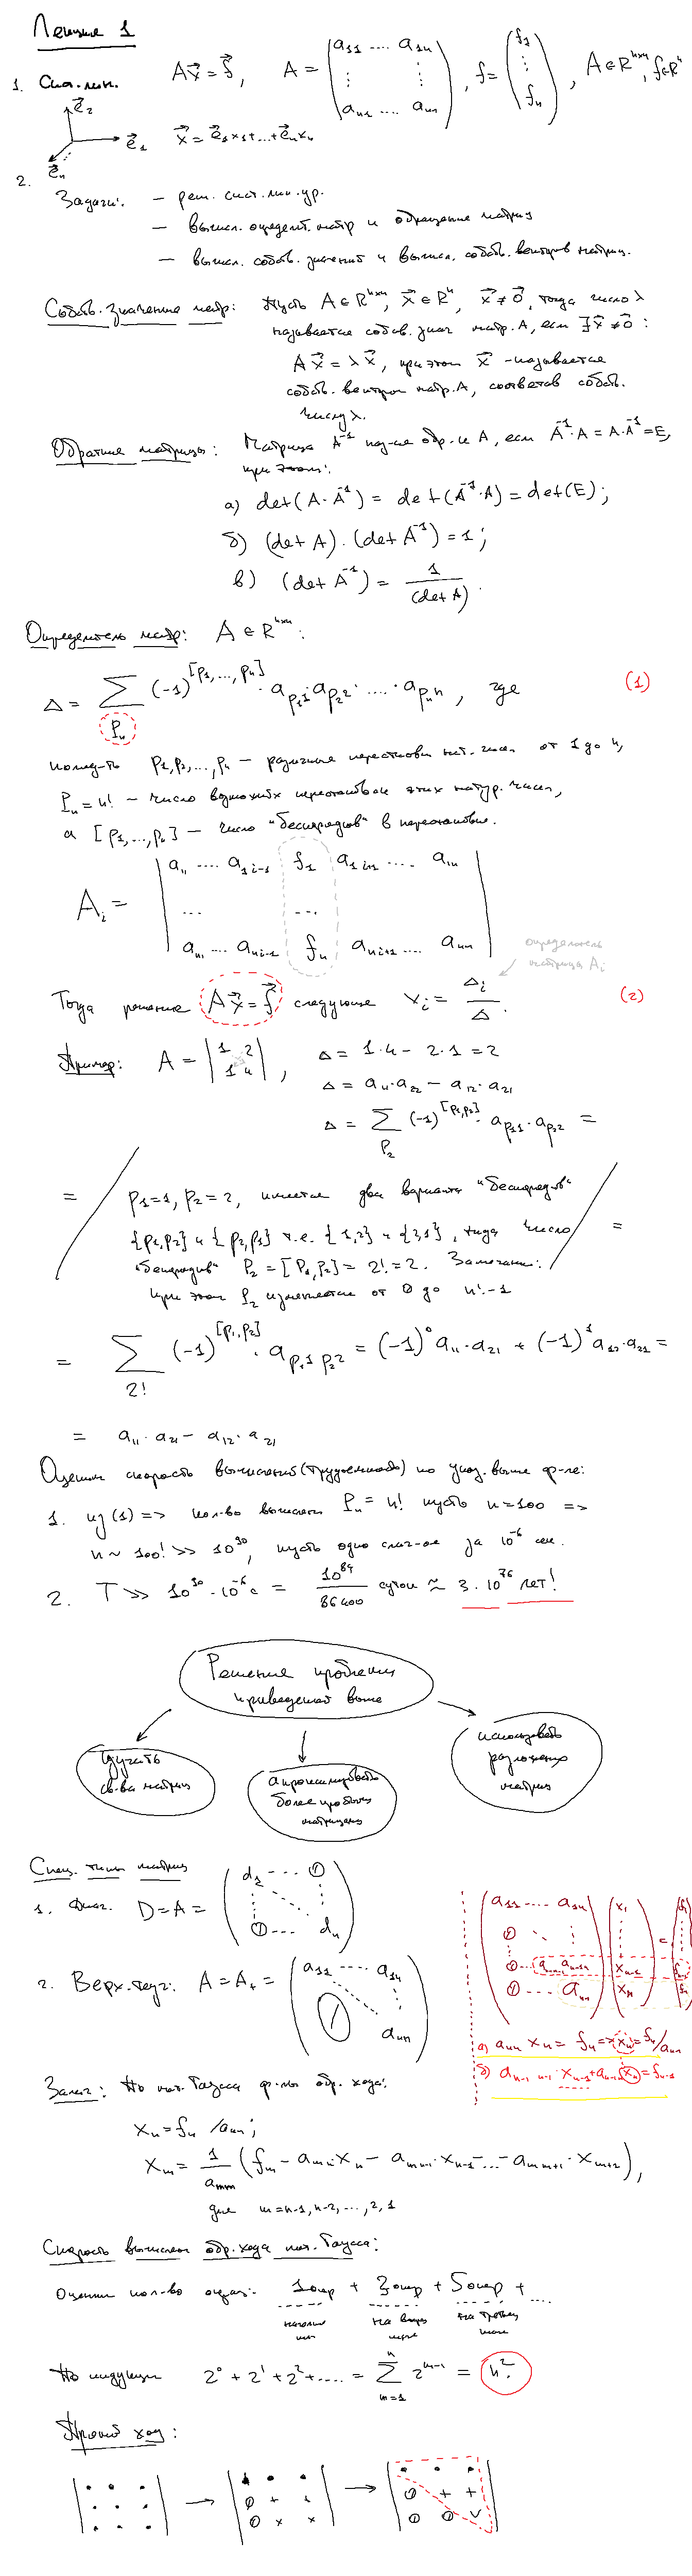 Лекция 1
1. Сист. лин. Ax⃗ = f⃗, A = (a₁₁ .... a₁ₙ ⋮ ⋮ aₙ₁ .... aₙₙ), f = (f₁ ⋮ fₙ), A∈Rⁿˣⁿ, f∈Rⁿ
e⃗₂
e⃗₁ x⃗ = e⃗₁x₁+...+e⃗ₙxₙ
e⃗ₙ
2.
Задачи: – реш. сист. лин. ур.
– вычисл. определ. матр и обращение матриц
– вычисл. собств. значений и вычисл. собств. векторов матриц.
Собств. значение матр: Пусть A∈Rⁿˣⁿ, x⃗∈Rⁿ, x⃗≠0⃗, тогда число λ
называется собств. знач матр. A, если ∃x⃗≠0⃗:
Ax⃗ = λx⃗, при этом x⃗ - называется
собств. вектором матр. A, соответств собств.
числу λ.
Обратные матрицы: Матрица A⁻¹ наз-ся обр. к A, если A⁻¹·A = A·A⁻¹ = E,
при этом:
а) det(A·A⁻¹) = det(A⁻¹·A) = det(E);
б) (det A)·(det A⁻¹) = 1;
в) (det A⁻¹) = 1/(det A).
Определитель матр: A∈Rⁿˣⁿ:
Δ = Σ_{Pₙ} (-1)^{[p₁,...,pₙ]} · a_{p₁1}·a_{p₂2}·....·a_{pₙn}, где (1)
p₁,p₂,...,pₙ – различные перестановки нат. чисел от 1 до n,
Pₙ = n! – число возможных перестановок этих натур. чисел,
а [p₁,...,pₙ] – число "беспорядков" в перестановке.
Aᵢ = |a₁₁ .... a₁ᵢ₋₁ f₁ a₁ᵢ₊₁ .... a₁ₙ
... ...
aₙ₁ .... aₙᵢ₋₁ fₙ aₙᵢ₊₁ .... aₙₙ|
определитель
матрицы Aᵢ
Тогда решение Ax⃗=f⃗ следующее xᵢ = Δᵢ/Δ. (2)
Пример: A = |1 2 1 4|, Δ = 1·4 – 2·1 = 2
Δ = a₁₁·a₂₂ – a₁₂·a₂₁
Δ = Σ_{P₂} (-1)^{[p₁,p₂]}·a_{p₁1}·a_{p₂2} =
= / p₁=1, p₂=2, имеется два варианта "беспорядков"
{p₁,p₂} и {p₂,p₁} т.е. {1,2} и {2,1}, тогда число / =
"беспорядков" P₂ = [p₁,p₂] = 2! = 2. Замечание:
при этом P₂ изменяется от 0 до n!-1
= Σ_{2!} (-1)^{[p₁,p₂]} · a_{p₁1 p₂2} = (-1)⁰a₁₁·a₂₁ + (-1)¹a₁₂·a₂₁ =
= a₁₁·a₂₁ – a₁₂·a₂₁
Оценим скорость вычислений (трудоемкость) по указ. выше ф-ле:
1. из (1) => кол-во вычислен Pₙ = n! пусть n=100 =>
n ~ 100! >> 10⁹⁰, пусть одно слаг-ое за 10⁻⁶ сек.
2. T >> 10⁹⁰·10⁻⁶ с = 10⁸⁴/86400 суток ≈ 3·10⁷⁶ лет!
Решение проблемы
приведенной выше
изучать
св-ва матриц
апроксимировать
более простыми
матрицами
использовать
разложения
матриц
Спец. типы матриц
1. Диаг. D=A= (d₁ ---- 0 0 ---- dₙ)
2. Верх. треуг. A=A₊= (a₁₁ .... a₁ₙ 0 aₙₙ)
(a₁₁ .... a₁ₙ 0 0 .. aₙ₋₁ₙ₋₁ aₙ₋₁ₙ 0 ... aₙₙ) (x₁ ⋮ xₙ₋₁ xₙ) = (f₁ ⋮ fₙ₋₁ fₙ)
а) aₙₙxₙ = fₙ => xₙ = fₙ/aₙₙ
б) aₙ₋₁ₙ₋₁·xₙ₋₁+aₙ₋₁ₙxₙ = fₙ₋₁
По мет. Гаусса ф-лы обр. хода:
xₙ = fₙ / aₙₙ;
xₘ = 1/aₘₘ (fₘ – aₘₙ·xₙ – aₘₙ₋₁·xₙ₋₁–...– aₘₘ₊₁·xₘ₊₁),
для m=n-1, n-2, ..., 2, 1
Скорость вычислен обр. хода мет. Гаусса:
Оценим кол-во операц: 1опер + 3опер + 5опер + ....
на первом шаге на втором шаге на третьем шаге
По индукции 2⁰ + 2¹ + 2² + .... = Σ_{m=1}^{n} 2^{m-1} = n².
Прямой ход: